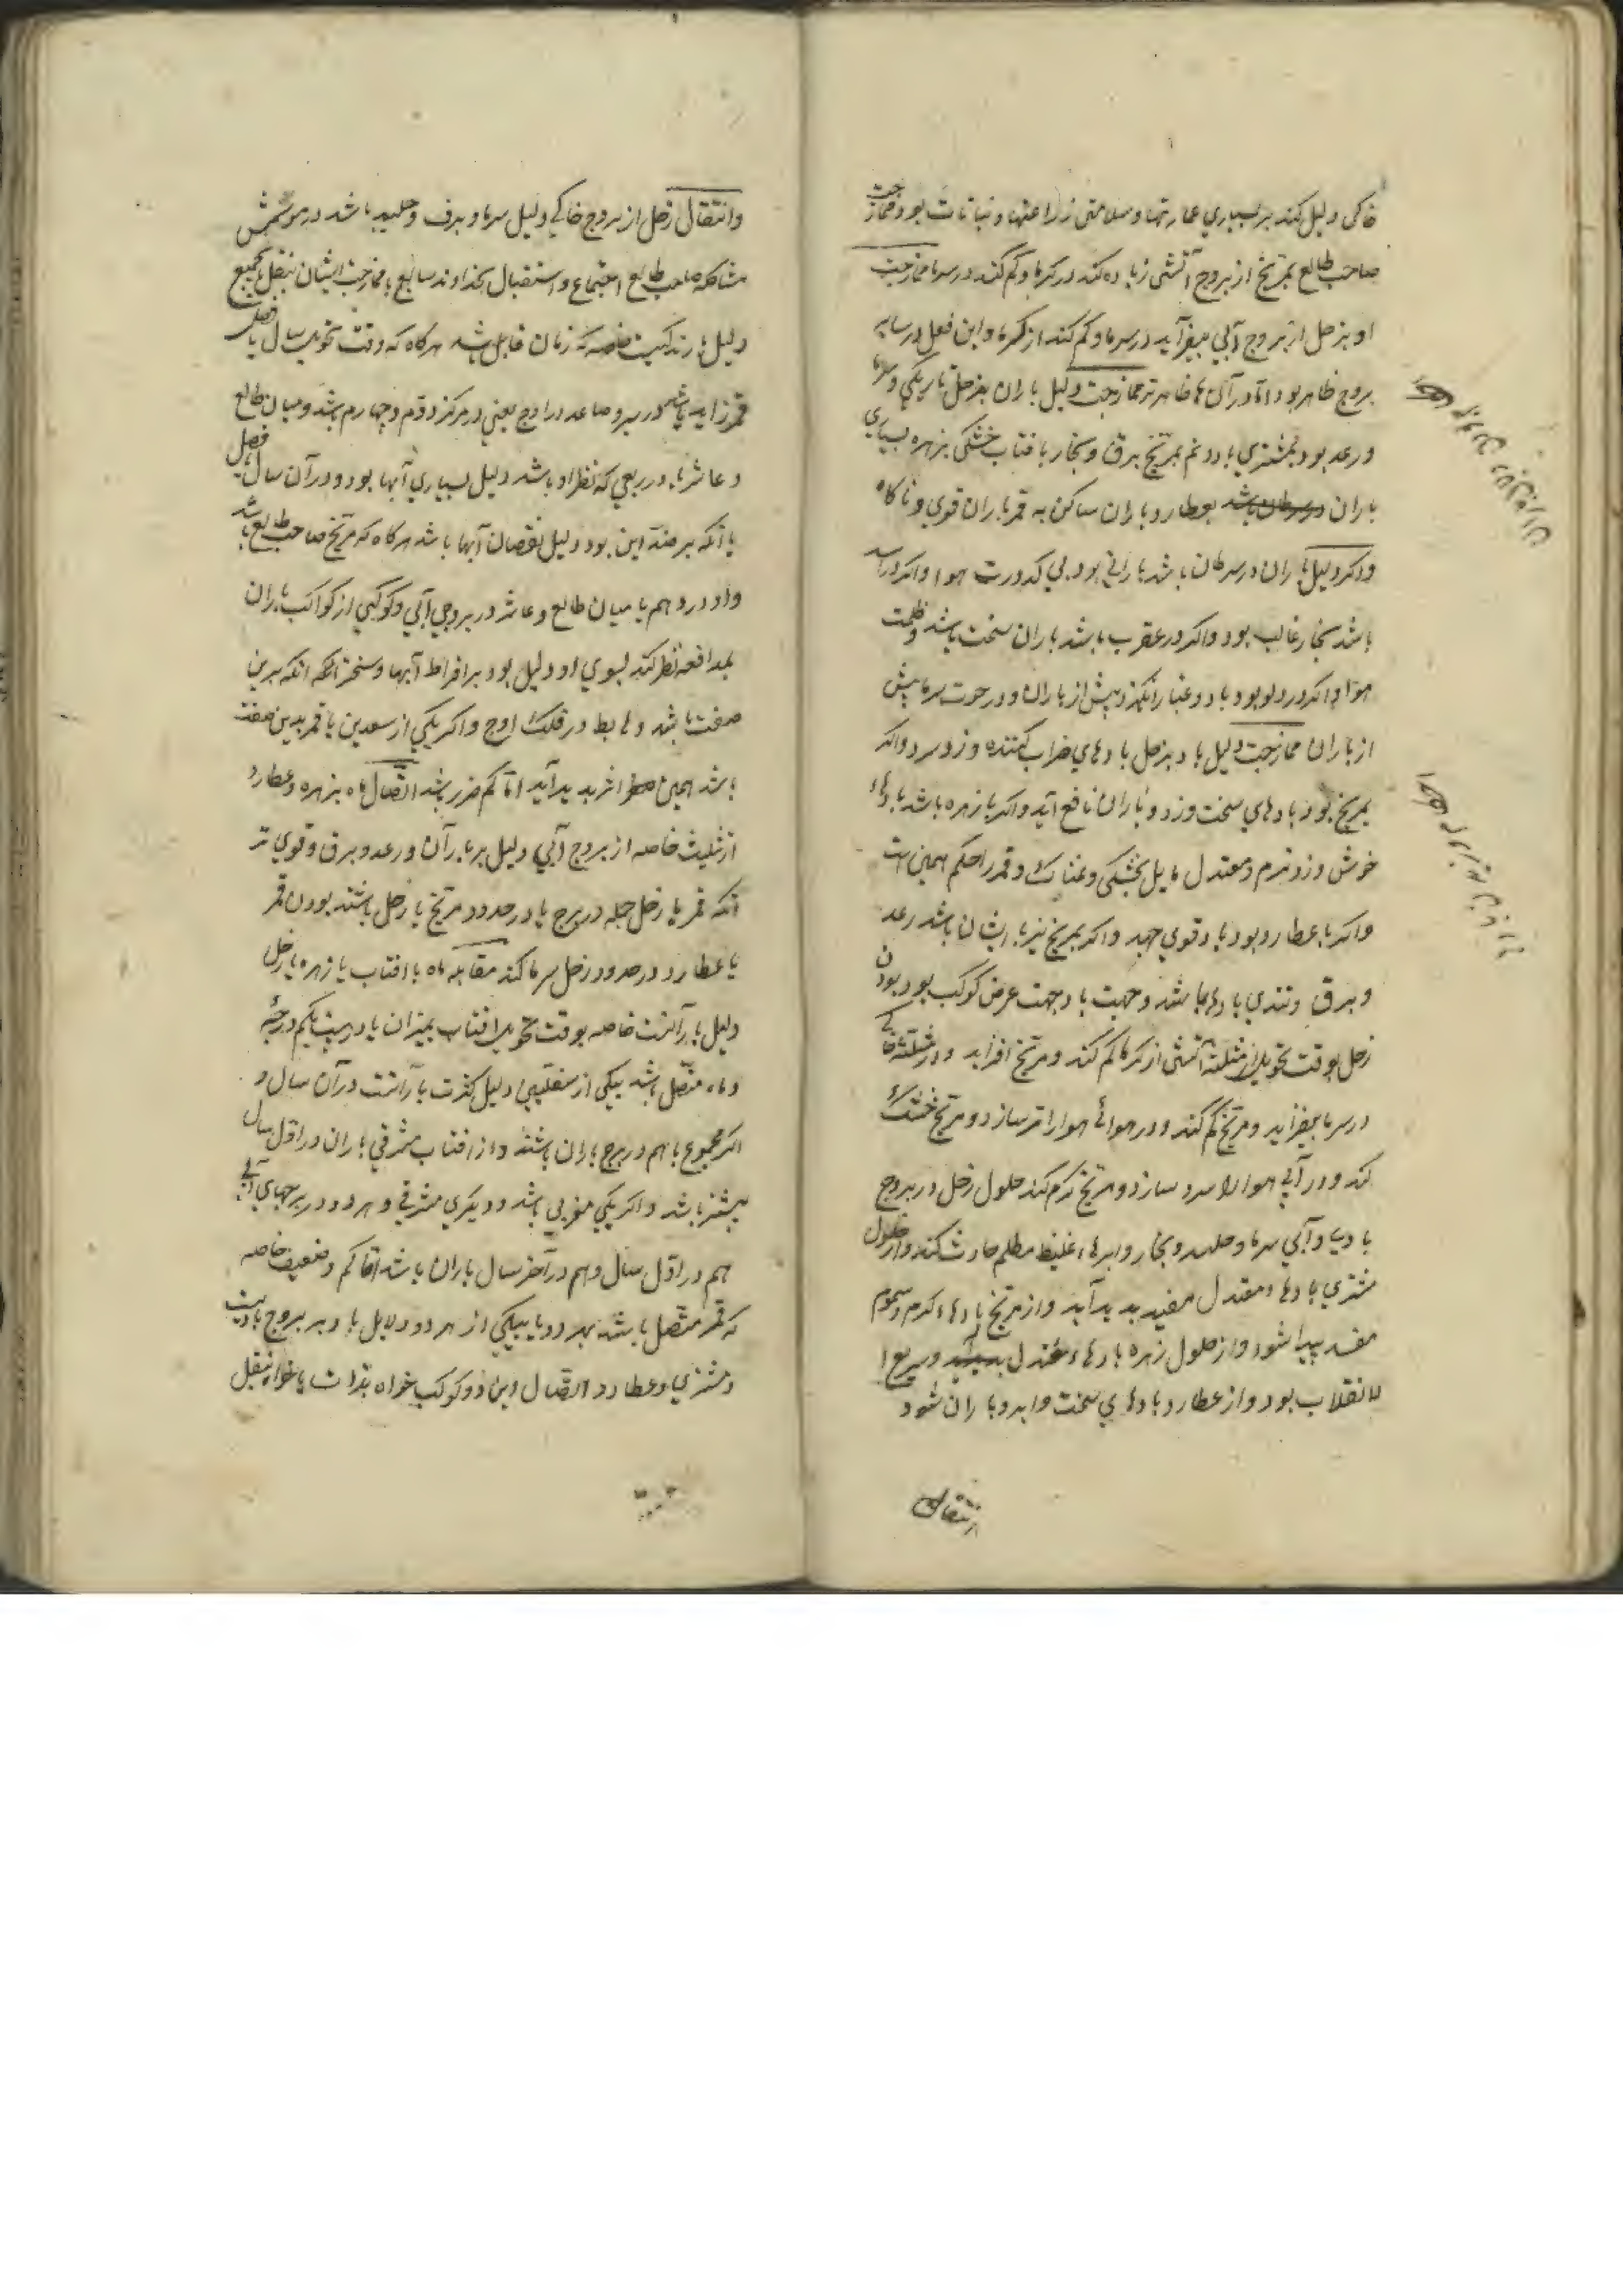 خاکی دلیل کند بر بسیاری عمارتها و سلامتی زراعتها و نباتات بود و ممازجت
صاحب طالع بمریخ از بروج آتشی زیاده کند در کرما و کم کند در سرما ممازجت
او بزحل از بروج آبی بیفزاید در سرما و کم کند از کرما و این فعل در سایر
بروج ظاهر بود اما در آن ها ظاهرتر ممازجت دلیل باران بزحل تاریکی و سرما
و رعد بود بمشتری باد و نم بمریخ برق و بخار بافتاب خشکی بزهره بسیاری
باران بعطارد باران ساکن به قمر باران قوی و ناکاه
واکر دلیل باران در سرطان باشد بارانی بود بی کدورت هوا واکر در اسد
باشد بخار غالب بود واکر در عقرب باشد باران سخت باشد و ظلمت
هوا واکر در دلو بود باد و غبار انکیزد پیش از باران و در حوت سرما پیش
از باران ممازجت دلیل باد بزحل بادهای خراب کننده وزد و سرد واکر
بمریخ بود بادهای سخت وزد و باران نافع آید واکر با زهره باشد بادهاء
خوش وزد نرم و معتدل مایل بخشکی و غمناک و قمر را حکم همین است
واکر با عطارد بود باد قوی جهد واکر بمریخ نیز با ایشان باشد رعد
و برق و تندی بادها باشد و جهت باد جهت عرض کوکب بود بودن
زحل بوقت تحویل از مثلثه آتشی از کرما کم کند و مریخ افزاید و در مثلثه خاکی
در سرما بیفزاید و مریخ کم کند و در هوائی هوا را تر سازد و مریخ خشک
کند و در آبی هوا را سرد سازد و مریخ کرم کند حلول زحل در بروج
بادی و آبی سرما و جلید و بخار و ابرهاء غلیظ مظلم حادث کند و از حلول
مشتری بادهاء معتدل مفید پدید آید و از مریخ بادهاء کرم و سموم
مفسد پیدا شود و از حلول زهره بادهاء معتدل و سریع ا
لانقلاب بود و از عطارد بادهای سخت و ابر و باران شود
انتقال
وانتقال زحل از بروج خاکی دلیل سرما و برف و جلید باشد در موسمش
مشاکله صاحب طالع اجتماع و استقبال بخداوند سابع یا ممازجت ایشان بنقل یا جمیع
دلیل بارندکیست خاصه که زمان قابل باشد هرکاه که وقت تحویل سال یا فصل
قمر زاید باشد در سیر و صاعد در اوج یعنی در مرکز دوم و چهارم باشد و میان طالع
و عاشر یا در ربعی که نظر او باشد دلیل بسیاری آبها بود در آن سال یا فصل
یا آنکه بر ضد این بود دلیل نقصان آبها باشد هرکاه که مریخ صاحب طالع باشد
و او در دهم یا میان طالع و عاشر در بروجی آبی و کوکبی از کواکب باران
بمدافعه نظر کند بسوی او دلیل بود بر افراط آبها
صفت باشد و هابط در فلک اوج واکر یکی از سعدین یا قمر بدین صفت
باشد همین اثر پدید آید اما کم ضرر باشد اتصال ماه بزهره و عطارد
از تثلیث خاصه از بروج آبی دلیل بر باران و رعد و برق و قوی تر
آنکه قمر با زحل جمله در برج یا در حدود مریخ یا زحل باشند بودن قمر
یا عطارد در حدود زحل سرما کند مقابله ماه با افتاب یا زهره یا زحل
دلیل بارانست خاصه بوقت تحویل افتاب بمیزان یا در بیست یکم درجهٔ
و ماه متصل باشد بیکی از سفلیین دلیل کثرت بارانست در آن سال و
اکر مجموع باهم در برج باران باشند و از افتاب مشرقی باران در اول سال
بیشتر باشد واکر یکی مغربی باشد و دیکری مشرقی و هر دو در برجهای آبی
هم در اول سال و هم در آخر سال باران باشد اما کم و ضعیف خاصه
که قمر متصل باشد بهر دو یا بیکی از هر دو دلایل باد بر بروج بادیست
و مشتری و عطارد اتصال این دو کوکب خواه بذات یا خواه بنقل